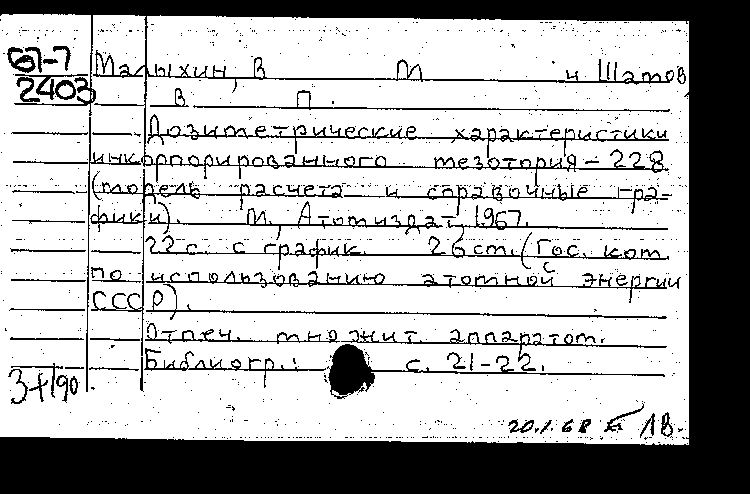 67-7
2403
Малыхин, В М и Шатов
В П.
Дозиметрические характеристики
инкорпорированного мезотория-228
(модель расчета и справочные гра-
фики). М., Атомиздат, 1967.
22 с. с график. 26 см. (Гос. ком.
по использованию атомной энергии
СССР).
Отпеч. множит. аппаратом.
Библиогр.: с. 21-22.
20.1.68